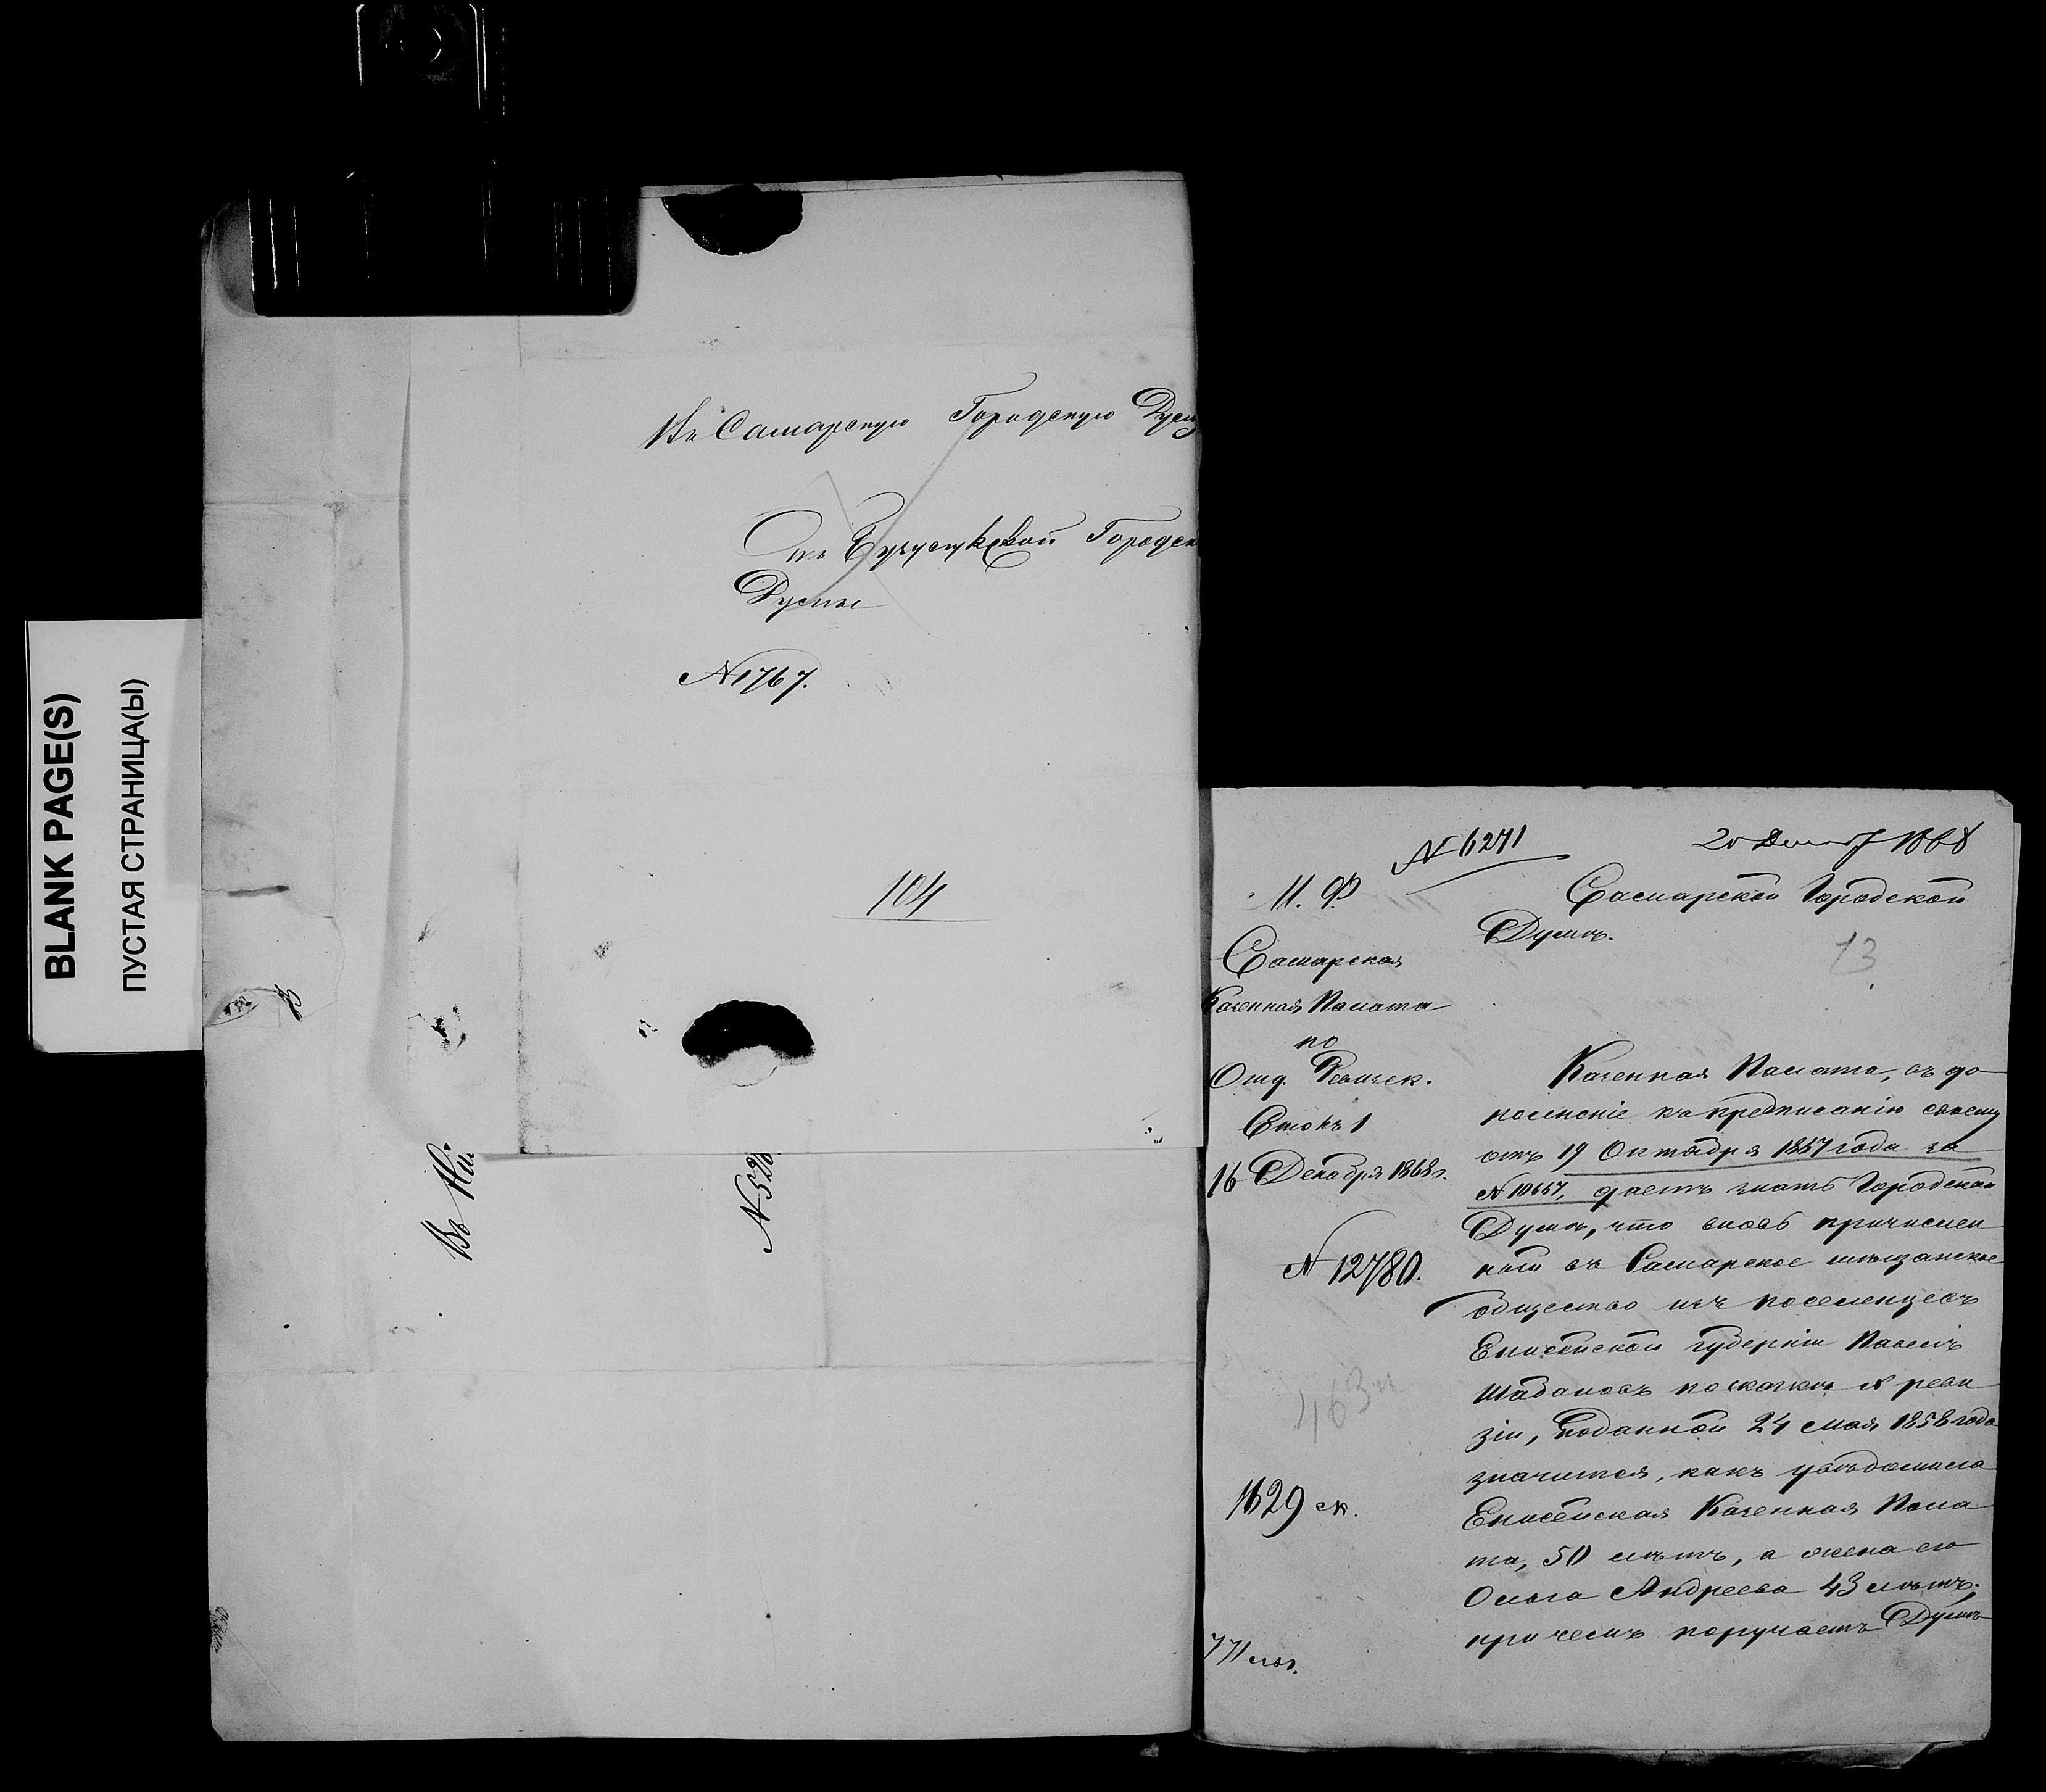 BLANK PAGE(S)
ПУСТАЯ СТРАНИЦА(Ы)
Въ Самарскую Городскую Думу
Изъ Бузулукской Городск
Думы
N 1767.
104
В
Въ
N 528
N 6271
20 Декаб 1868
М. Ф.
Самарская
Казенная Палата
по
Отд. Ревизск.
Столъ 1
16 Декабря 1868 г.
N 12780.
463
1629 ск.
771
Самарской Городской
Думѣ.
73
Казенная Палата, въ до
полненіе къ предписанію своему
отъ 19 Октября 1867 года за
N 10667, даетъ знать Городской
Думѣ, что вновь причислен
ный въ Самарское мѣщанское
общество изъ поселенцевъ
Енисейской губерніи Павелъ
Шабановъ по сказкѣ X реви
зіи, поданной 24 мая 1858 года
значится, какъ увѣдомила
Енисейская Казенная Пала
та, 50 лѣтъ, а жена его
Ольга Андреева 43 лѣтъ;
при чемъ поручаетъ Думѣ